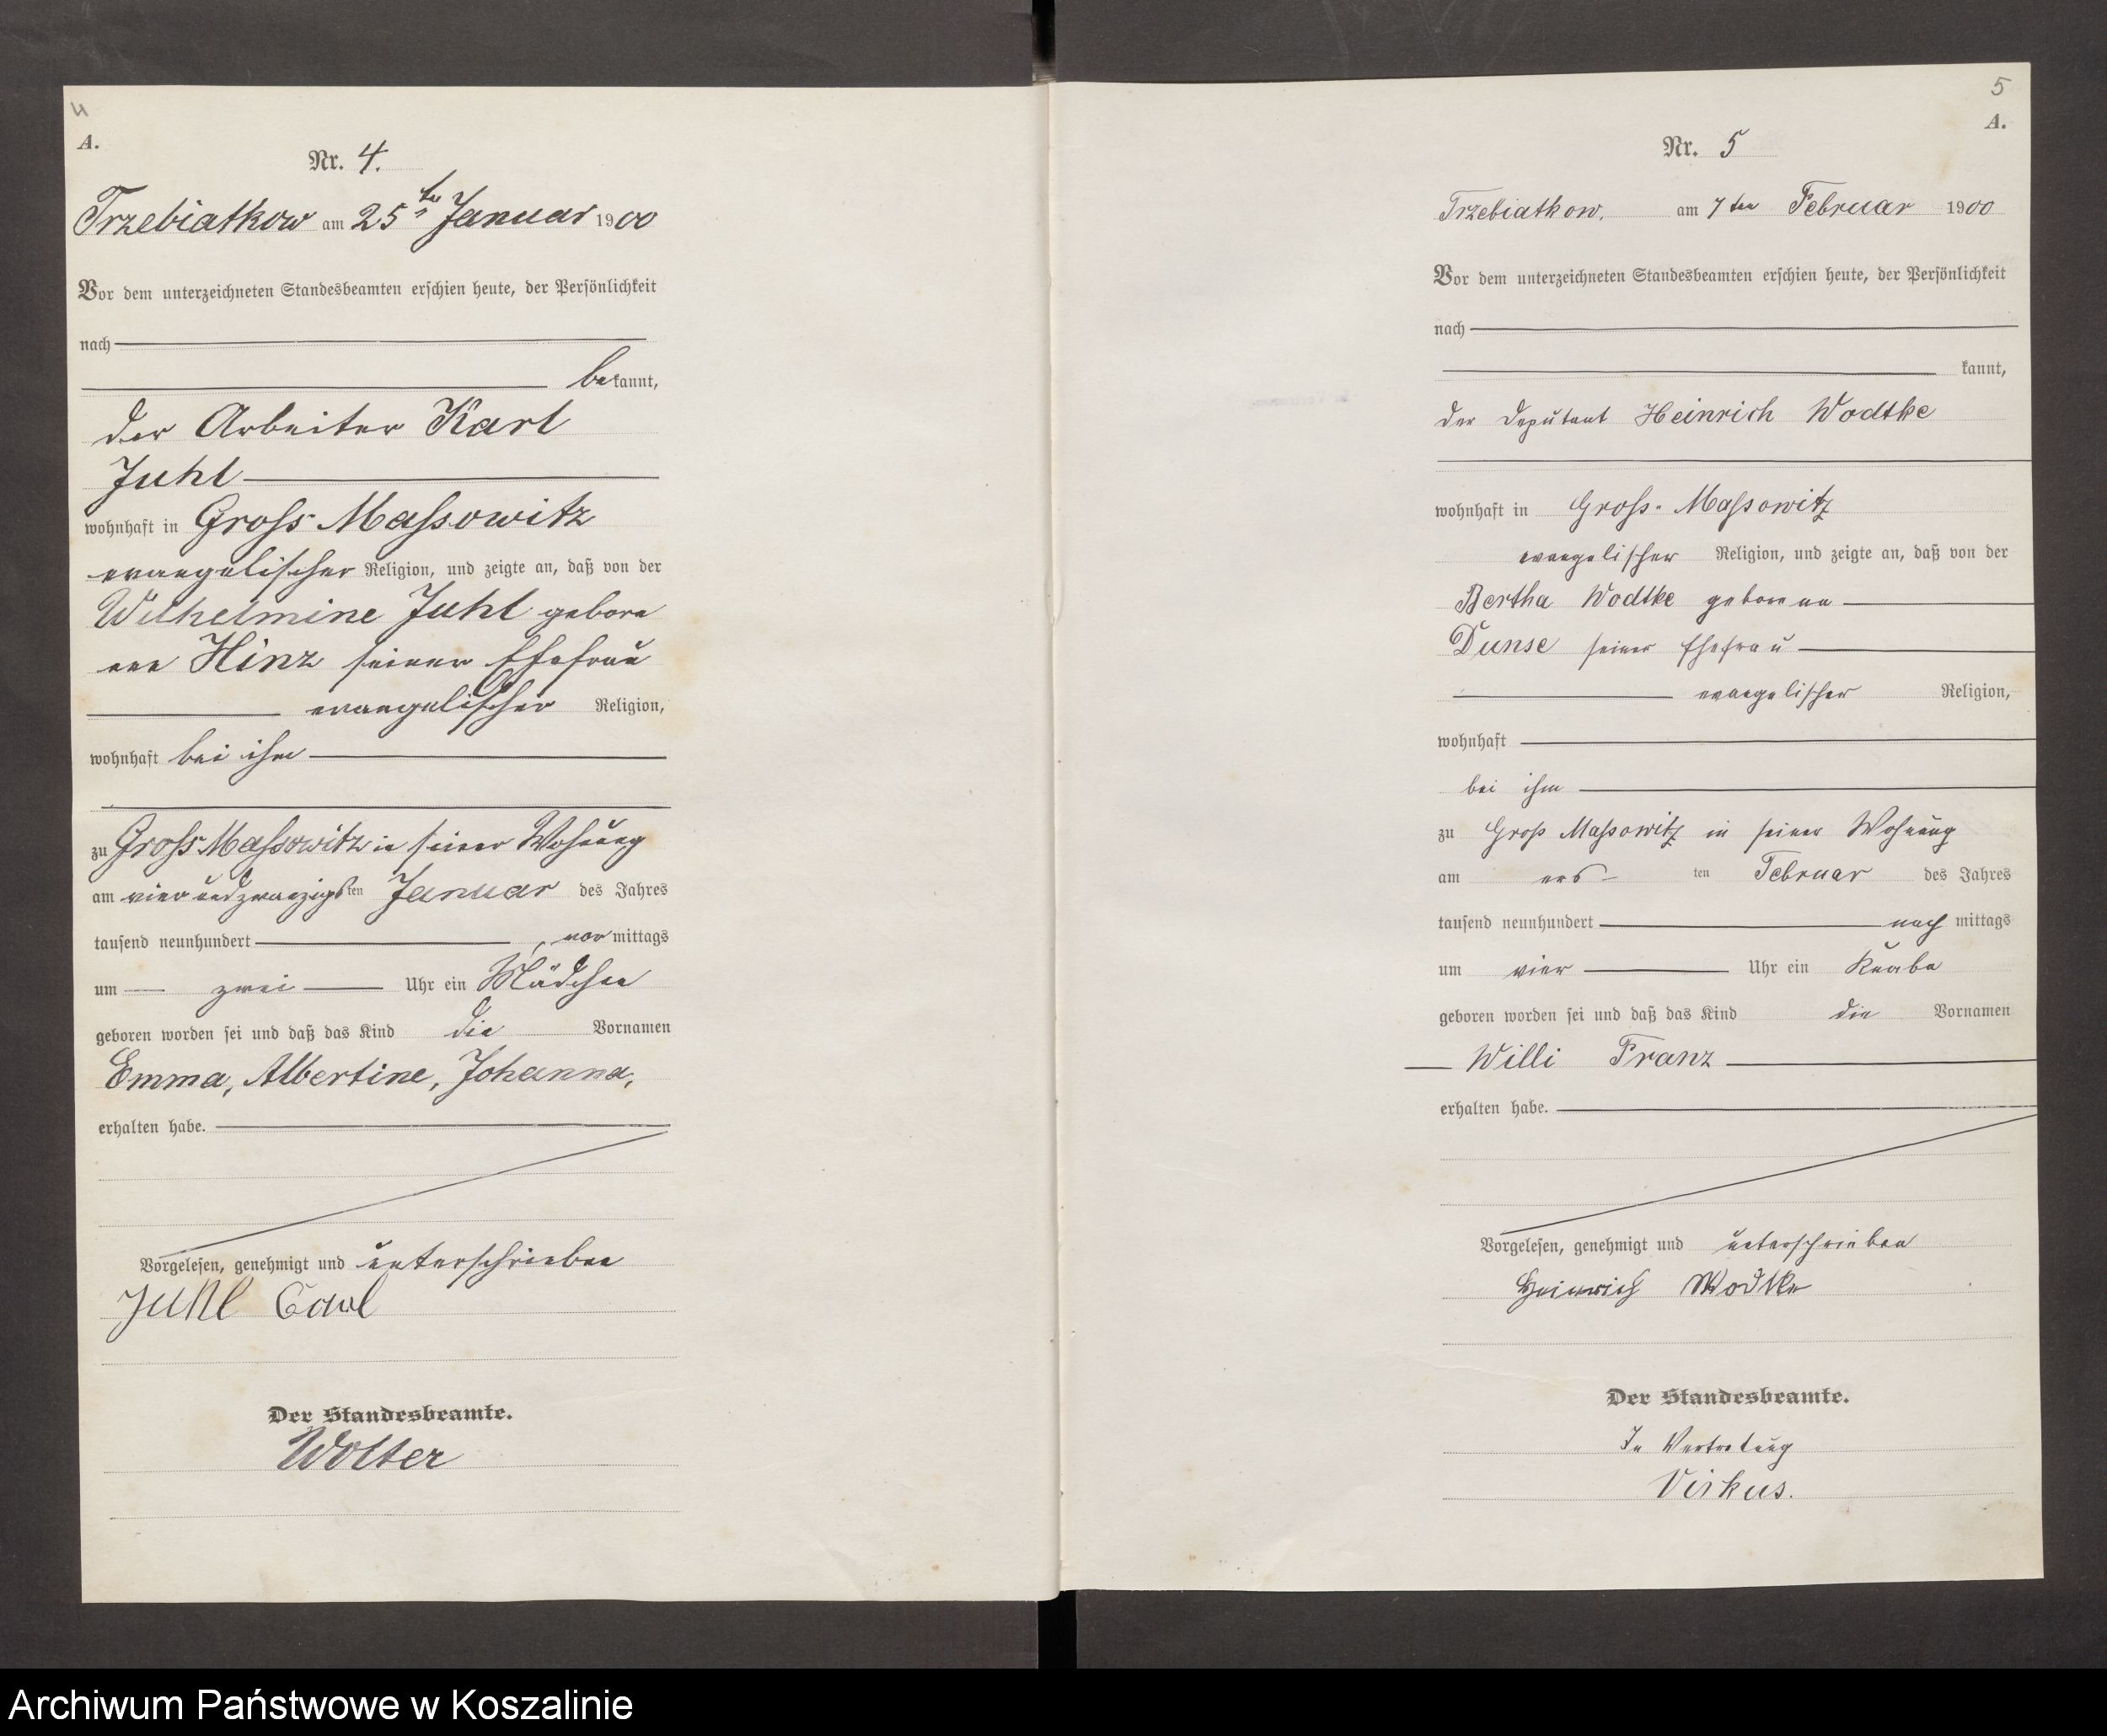 4
A.
Nr. 4.
Trzebiatkow am 25ten Januar 1900
Vor dem unterzeichneten Standesbeamten erschien heute, der Persönlichkeit
nach
bekannt,
der Arbeiter Karl
Juhl
wohnhaft in Gross Massowitz
evangelischer Religion, und zeigte an, daß von der
Wilhelmine Juhl gebore
nen Hinz seiner Ehefrau
evangelischer Religion,
wohnhaft bei ihm
zu Gross Massowitz in seiner Wohnung
am vierundzwanzigsten Januar des Jahres
tausend neunhundert, vormittags
um zwei Uhr ein Mädchen
geboren worden sei und daß das Kind die Vornamen
Emma, Albertine, Johanna,
erhalten habe.
Vorgelesen, genehmigt und unterschrieben
Juhl Carl
Der Standesbeamte.
Wolter
5
A.
Nr. 5
Trzebiatkow. am 7ten Februar 1900
Vor dem unterzeichneten Standesbeamten erschien heute, der Persönlichkeit
nach
kannt,
der Deputant Heinrich Wodtke
wohnhaft in Gross-Massowitz
evangelischer Religion, und zeigte an, daß von der
Bertha Wodtke geborenen
Dunse seiner Ehefrau
evangelischer Religion,
wohnhaft
bei ihm
zu Gross Massowitz in seiner Wohnung
am ersten Februar des Jahres
tausend neunhundert nachmittags
um vier Uhr ein Knabe
geboren worden sei und daß das Kind die Vornamen
Willi Franz
erhalten habe.
Vorgelesen, genehmigt und unterschrieben
Heinrich Wodtke
Der Standesbeamte.
In Vertretung
Virkus.
Archiwum Państwowe w Koszalinie